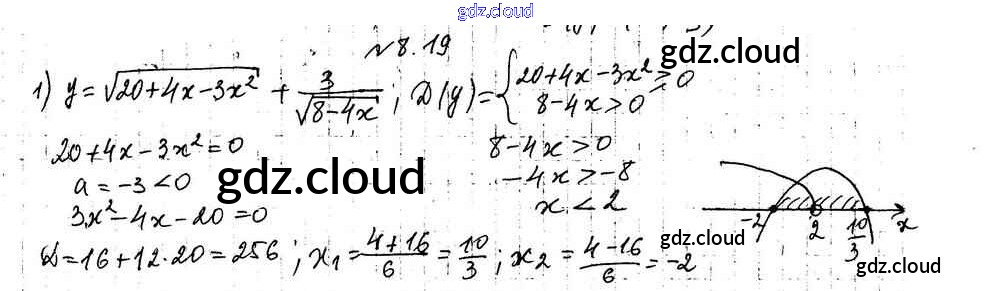 gdz.cloud
№8.19
gdz.cloud
1) y = √(20+4x-3x²) + 3/√(8-4x) ; D(y) = { 20+4x-3x² ≥ 0
8-4x > 0
20+4x-3x²=0
8-4x>0
a = -3 < 0
gdz.cloud
-4x > -8
3x²-4x-20=0
x < 2
-2 2 10/3 x
gdz.cloud
D=16+12·20=256 ; x₁ = (4+16)/6 = 10/3 ; x₂ = (4-16)/6 = -2
gdz.cloud